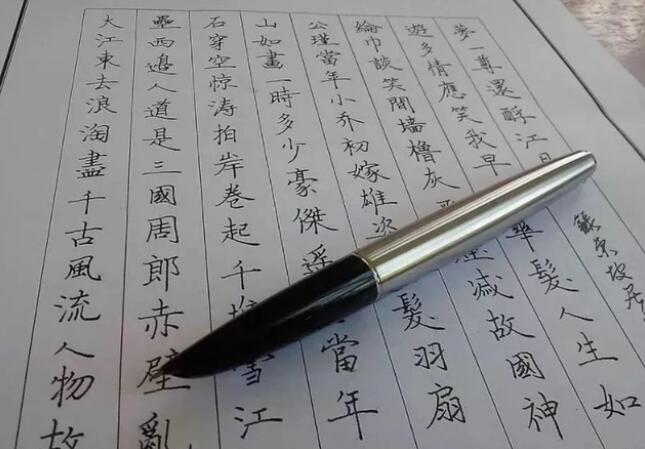 大江東去浪淘盡千古風流人物故
壘西邊人道是三國周郎赤壁亂
石穿空惊涛拍岸卷起千堆雪江
山如畫一時多少豪傑遥當年
公瑾當年小乔初嫁雄姿髮羽扇
綸巾談笑間墙櫓灰減故國神
遊多情應笑我早華髮人生如
夢一尊還酹江月